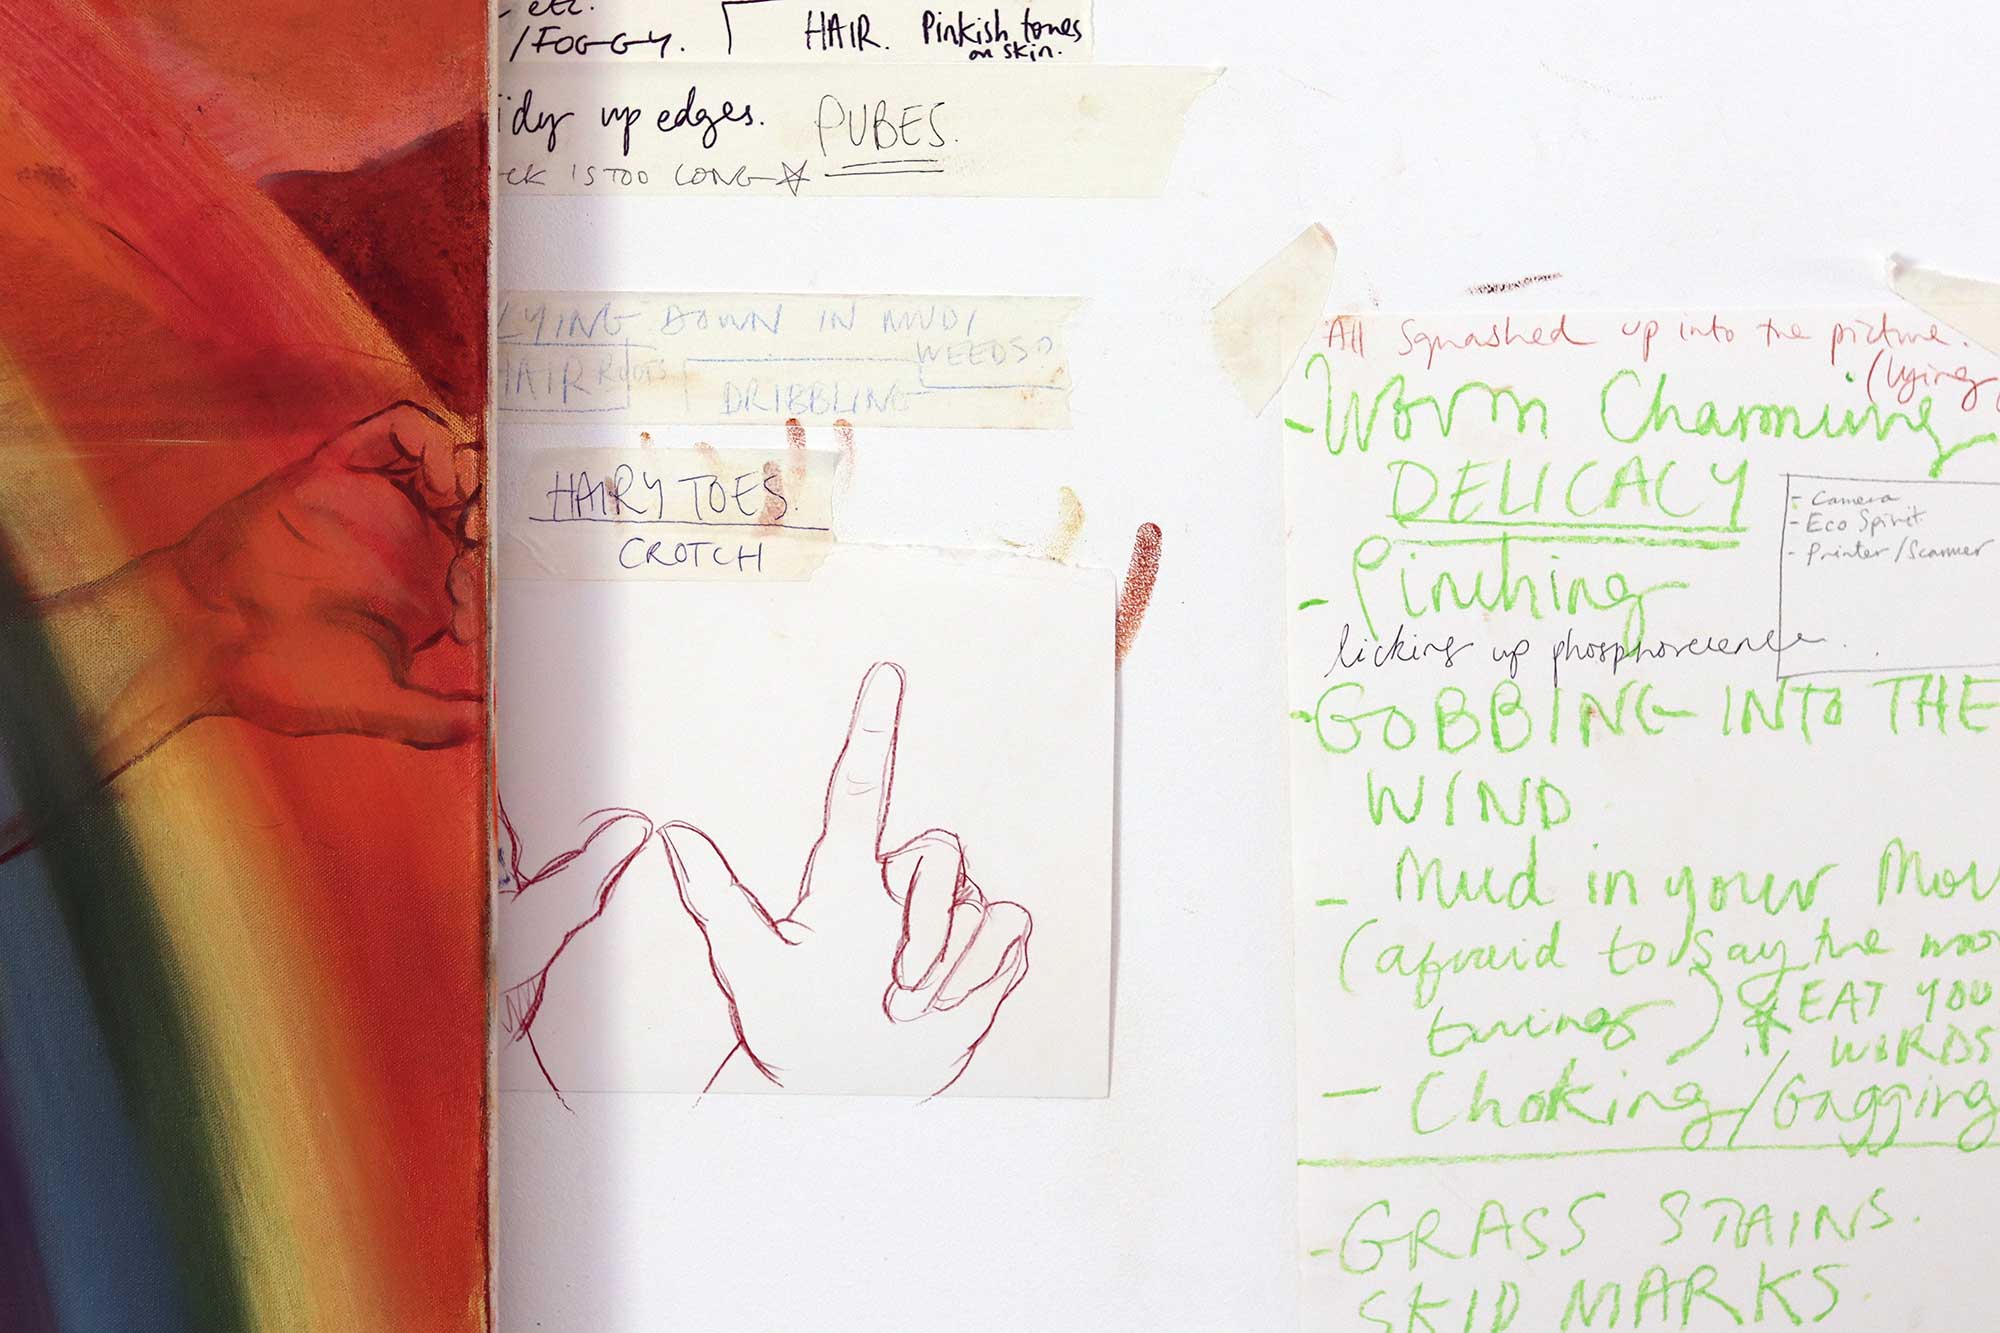 etc.
/FOGGY.
HAIR. Pinkish tones
on skin.
idy up edges. PUBES.
ck IS TOO LONG
LYING DOWN IN MUD/
WEEDS?
HAIR ROOTS
DRIBBLING
HAIRY TOES.
CROTCH
All squashed up into the picture.
(lying
- Worm Charming
DELICACY
- Camera
- Eco Spirit
- Printer/Scanner
- Pinching
licking up phosphorescence
- GOBBING INTO THE
WIND
- Mud in your Mou
(afraid to say the
things)
* EAT YOU
WORDS
- Choking/Gagging
- GRASS STAINS.
SKID MARKS.